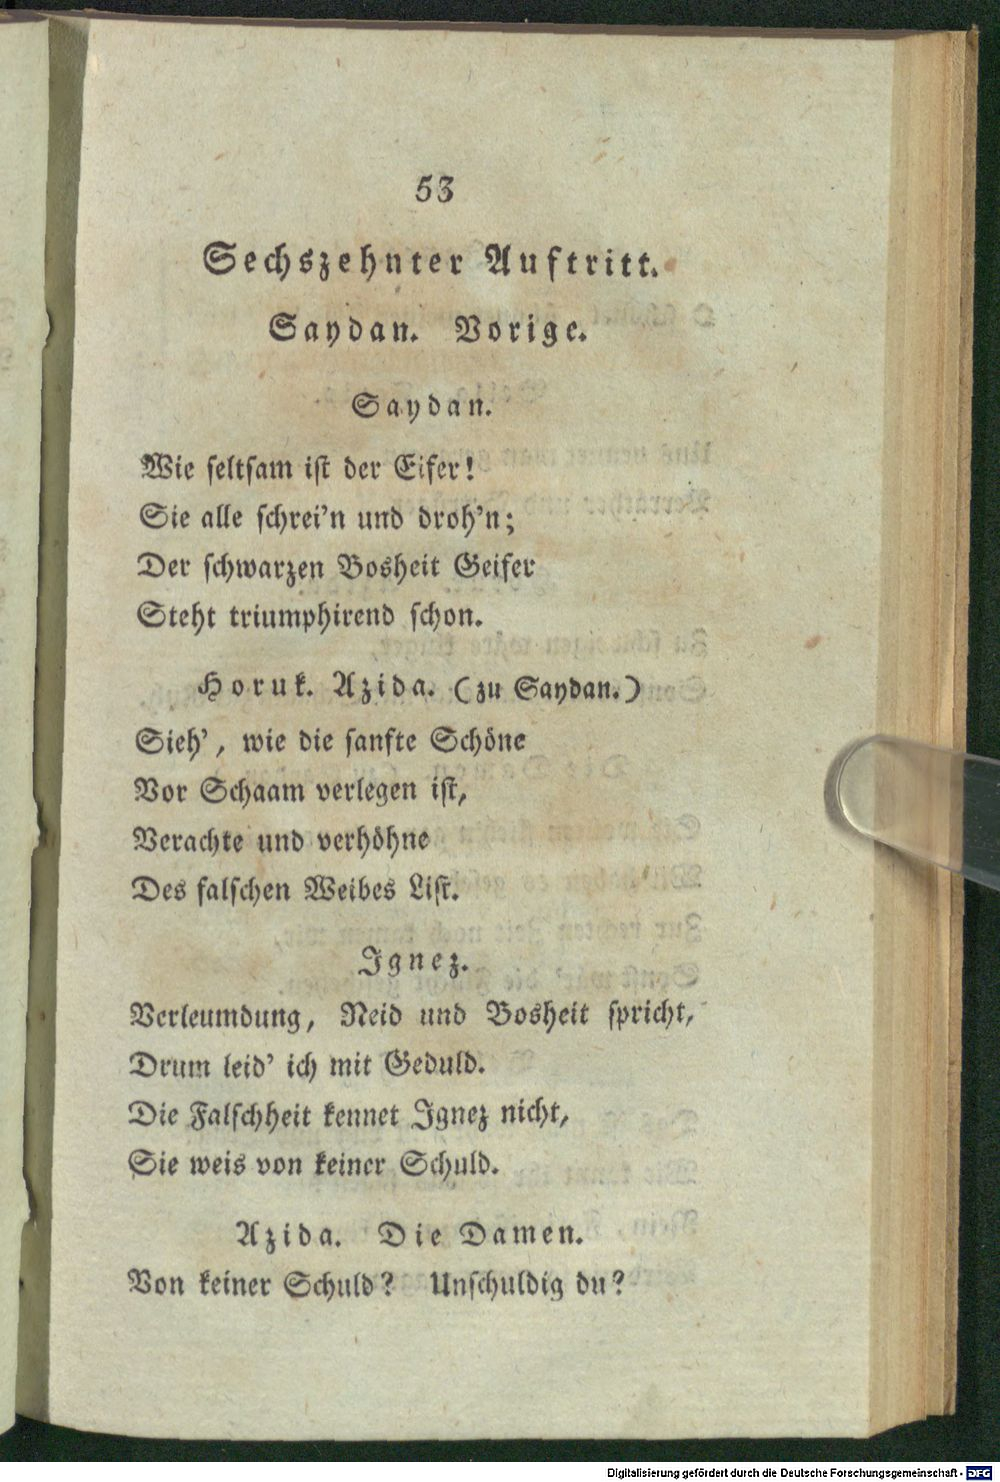 53
Sechszehnter Auftritt.
Saydan. Vorige.
Saydan.
Wie seltsam ist der Eifer!
Sie alle schrei'n und droh'n;
Der schwarzen Bosheit Geifer
Steht triumphirend schon.
Horuk. Azida. (zu Saydan.)
Sieh', wie die sanfte Schöne
Vor Schaam verlegen ist,
Verachte und verhöhne
Des falschen Weibes List.
Ignez.
Verleumdung, Neid und Bosheit spricht,
Drum leid' ich mit Geduld.
Die Falschheit kennet Ignez nicht,
Sie weis von keiner Schuld.
Azida. Die Damen.
Von keiner Schuld? Unschuldig du?
Digitalisierung gefördert durch die Deutsche Forschungsgemeinschaft - DFG